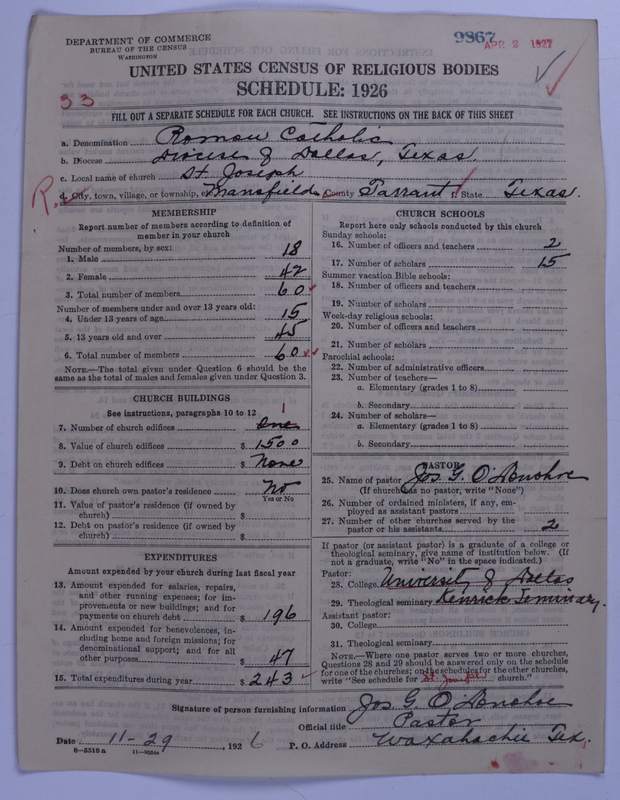 DEPARTMENT OF COMMERCE
BUREAU OF THE CENSUS
WASHINGTON
9867
APR 2 1927
UNITED STATES CENSUS OF RELIGIOUS BODIES
SCHEDULE: 1926
FILL OUT A SEPARATE SCHEDULE FOR EACH CHURCH. SEE INSTRUCTIONS ON THE BACK OF THIS SHEET
a. Denomination Roman Catholic
b. Diocese Diocese of Dallas, Texas.
c. Local name of church St. Joseph
d. City, town, village, or township, Mansfield County Tarrant State Texas.
MEMBERSHIP
Report number of members according to definition of
member in your church
Number of members, by sex:
1. Male 18
2. Female 42
3. Total number of members 60
Number of members under and over 13 years old:
4. Under 13 years of age 15
5. 13 years old and over 45
6. Total number of members 60
NOTE.—The total given under Question 6 should be
same as the total of males and females given under Question 3.
CHURCH BUILDINGS
See instructions, paragraphs 10 to 12
1
7. Number of church edifices One
8. Value of church edifices $ 1500
9. Debt on church edifices $ None
10. Does church own pastor's residence No
Yes or No
11. Value of pastor's residence (if owned by
church) $
12. Debt on pastor's residence (if owned by
church) $
EXPENDITURES
Amount expended by your church during last fiscal year
13. Amount expended for salaries, repairs,
and other running expenses; for im-
provements or new buildings; and for
payments on church debt $ 196
14. Amount expended for benevolences, in-
cluding home and foreign missions; for
denominational support; and for all
other purposes $ 47
15. Total expenditures during year $ 243
CHURCH SCHOOLS
Report here only schools conducted by this church
Sunday schools:
16. Number of officers and teachers 2
17. Number of scholars 15
Summer vacation Bible schools:
18. Number of officers and teachers
19. Number of scholars
Week-day religious schools:
20. Number of officers and teachers
21. Number of scholars
Parochial schools:
22. Number of administrative officers
23. Number of teachers—
a. Elementary (grades 1 to 8)
b. Secondary
24. Number of scholars—
a. Elementary (grades 1 to 8)
b. Secondary
PASTOR
25. Name of pastor Jos. G. O'Donohoe
(If church has no pastor, write "None")
26. Number of ordained ministers, if any, em-
ployed as assistant pastors
27. Number of other churches served by the
pastor or his assistants 2
If pastor (or assistant pastor) is a graduate of a college or
theological seminary, give name of institution below. (If
not a graduate, write "No" in the space indicated.)
Pastor:
28. College University of Dallas
29. Theological seminary Kenrick Seminary.
Assistant pastor:
30. College
31. Theological seminary
NOTE.—Where one pastor serves two or more churches,
Questions 28 and 29 should be answered only on the schedule
for one of the churches; on the schedules for the other churches,
write "See schedule for St. Joseph church."
Signature of person furnishing information Jos G. O'Donohoe
Official title Pastor
Date 11-29, 1926 P. O. Address Waxahachie Tex.
8-5518a